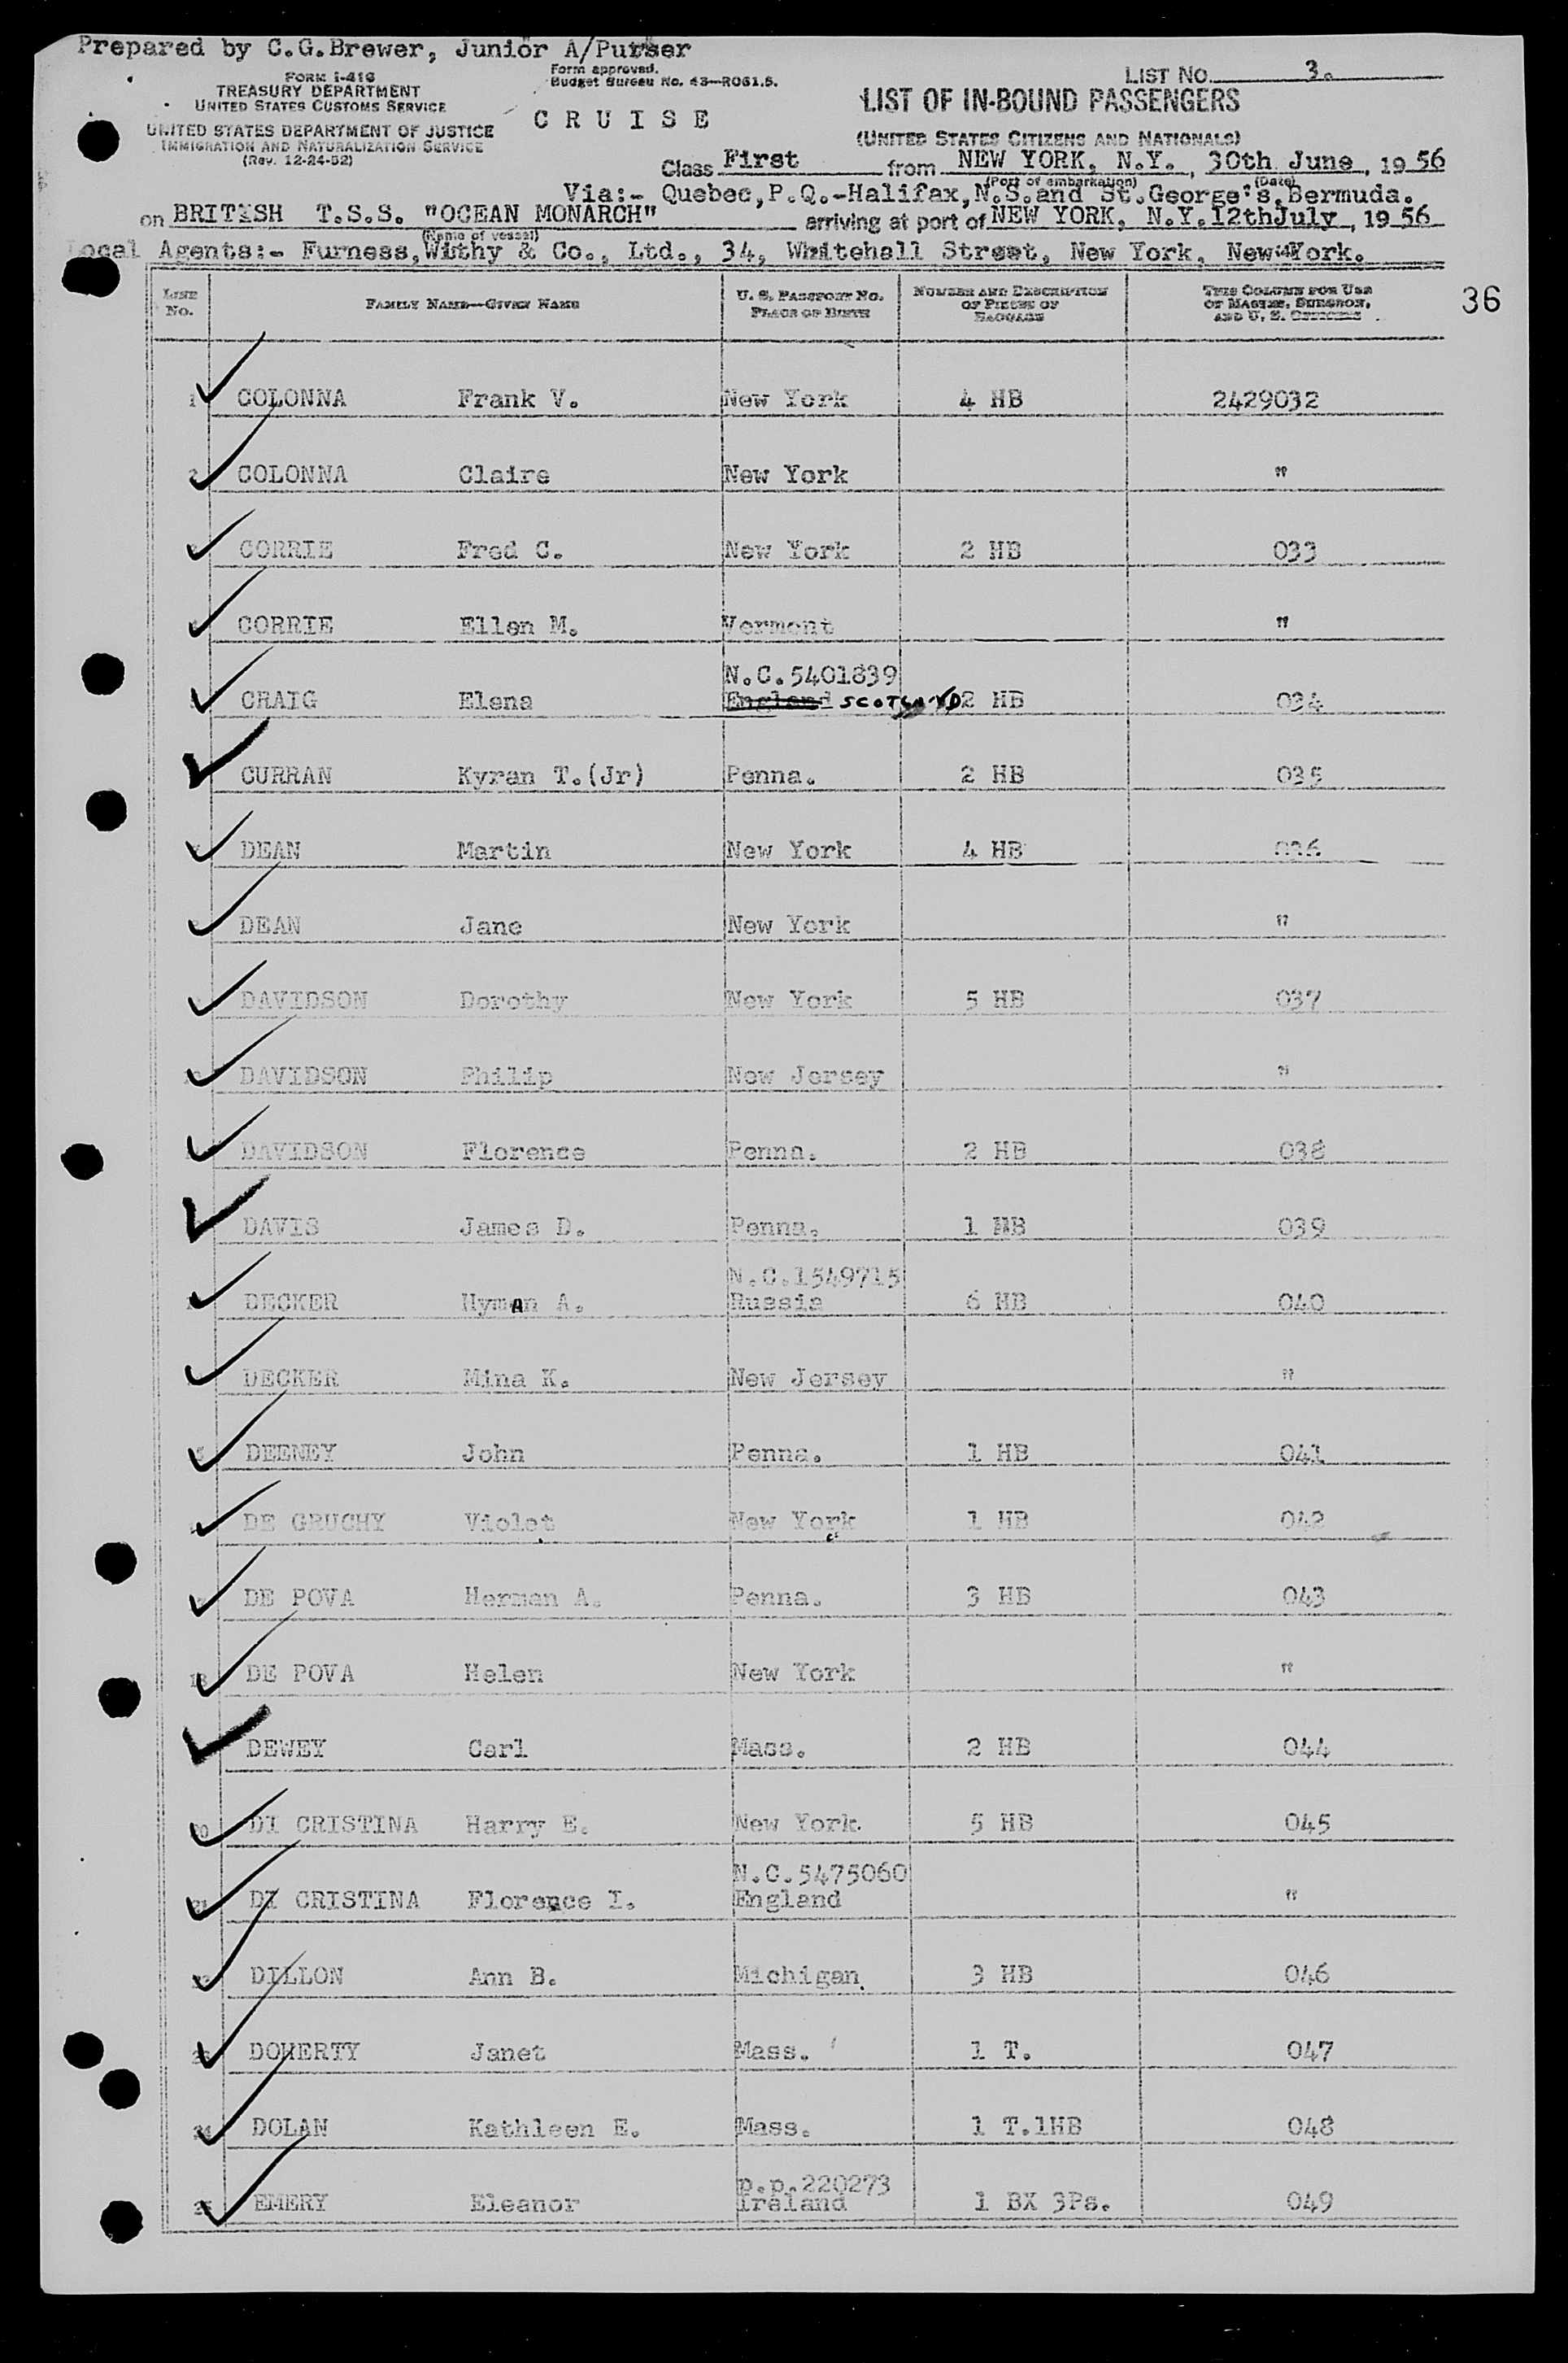 Prepared by C.G.Brewer, Junior A/Purser
FORM I-418
TREASURY DEPARTMENT
UNITED STATES CUSTOMS SERVICE
UNITED STATES DEPARTMENT OF JUSTICE
IMMIGRATION AND NATURALIZATION SERVICE
(Rev. 12-24-52)
Form approved.
Budget Bureau No. 43—R061.5.
CRUISE
LIST NO. 3.
LIST OF IN-BOUND PASSENGERS
(UNITED STATES CITIZENS AND NATIONALS)
Class First from NEW YORK, N.Y., 30th June, 1956
(Port of embarkation) (Date)
Via:- Quebec,P.Q.-Halifax,N.S.and St.George's,Bermuda.
on BRITISH T.S.S. "OCEAN MONARCH" arriving at port of NEW YORK, N.Y.12thJuly, 1956
(Name of vessel)
Local Agents:- Furness,Withy & Co., Ltd., 34, Whitehall Street, New York, New York.
LINE No. FAMILY NAME—GIVEN NAME U. S. PASSPORT NO. PLACE OF BIRTH NUMBER AND DESCRIPTION OF PIECES OF BAGGAGE THIS COLUMN FOR USE OF MASTER, SURGEON, AND U. S. OFFICERS
36
1 COLONNA Frank V. New York 4 HB 2429032
2 COLONNA Claire New York "
CORRIE Fred C. New York 2 HB 033
CORRIE Ellen M. Vermont "
N.C.5401839
CRAIG Elena England SCOTLAND 2 HB 034
CURRAN Kyran T.(Jr) Penna. 2 HB 035
DEAN Martin New York 4 HB 036
DEAN Jane New York "
DAVIDSON Dorothy New York 5 HB 037
DAVIDSON Philip New Jersey "
DAVIDSON Florence Penna. 2 HB 038
DAVIS James D. Penna. 1 HB 039
N.C.1549715
DECKER Hyman A. Russia 6 HB 040
DECKER Mina K. New Jersey "
DEENEY John Penna. 1 HB 041
DE GRUCHY Violet New York 1 HB 042
DE POVA Herman A. Penna. 3 HB 043
18 DE POVA Helen New York "
DEWEY Carl Mass. 2 HB 044
20 DI CRISTINA Harry E. New York 5 HB 045
N.C.5475060
21 DI CRISTINA Florence I. England "
22 DILLON Ann B. Michigan 3 HB 046
23 DOHERTY Janet Mass. 1 T. 047
24 DOLAN Kathleen E. Mass. 1 T.1HB 048
p.p.220273
25 EMERY Eleanor Ireland 1 BX 3Ps. 049